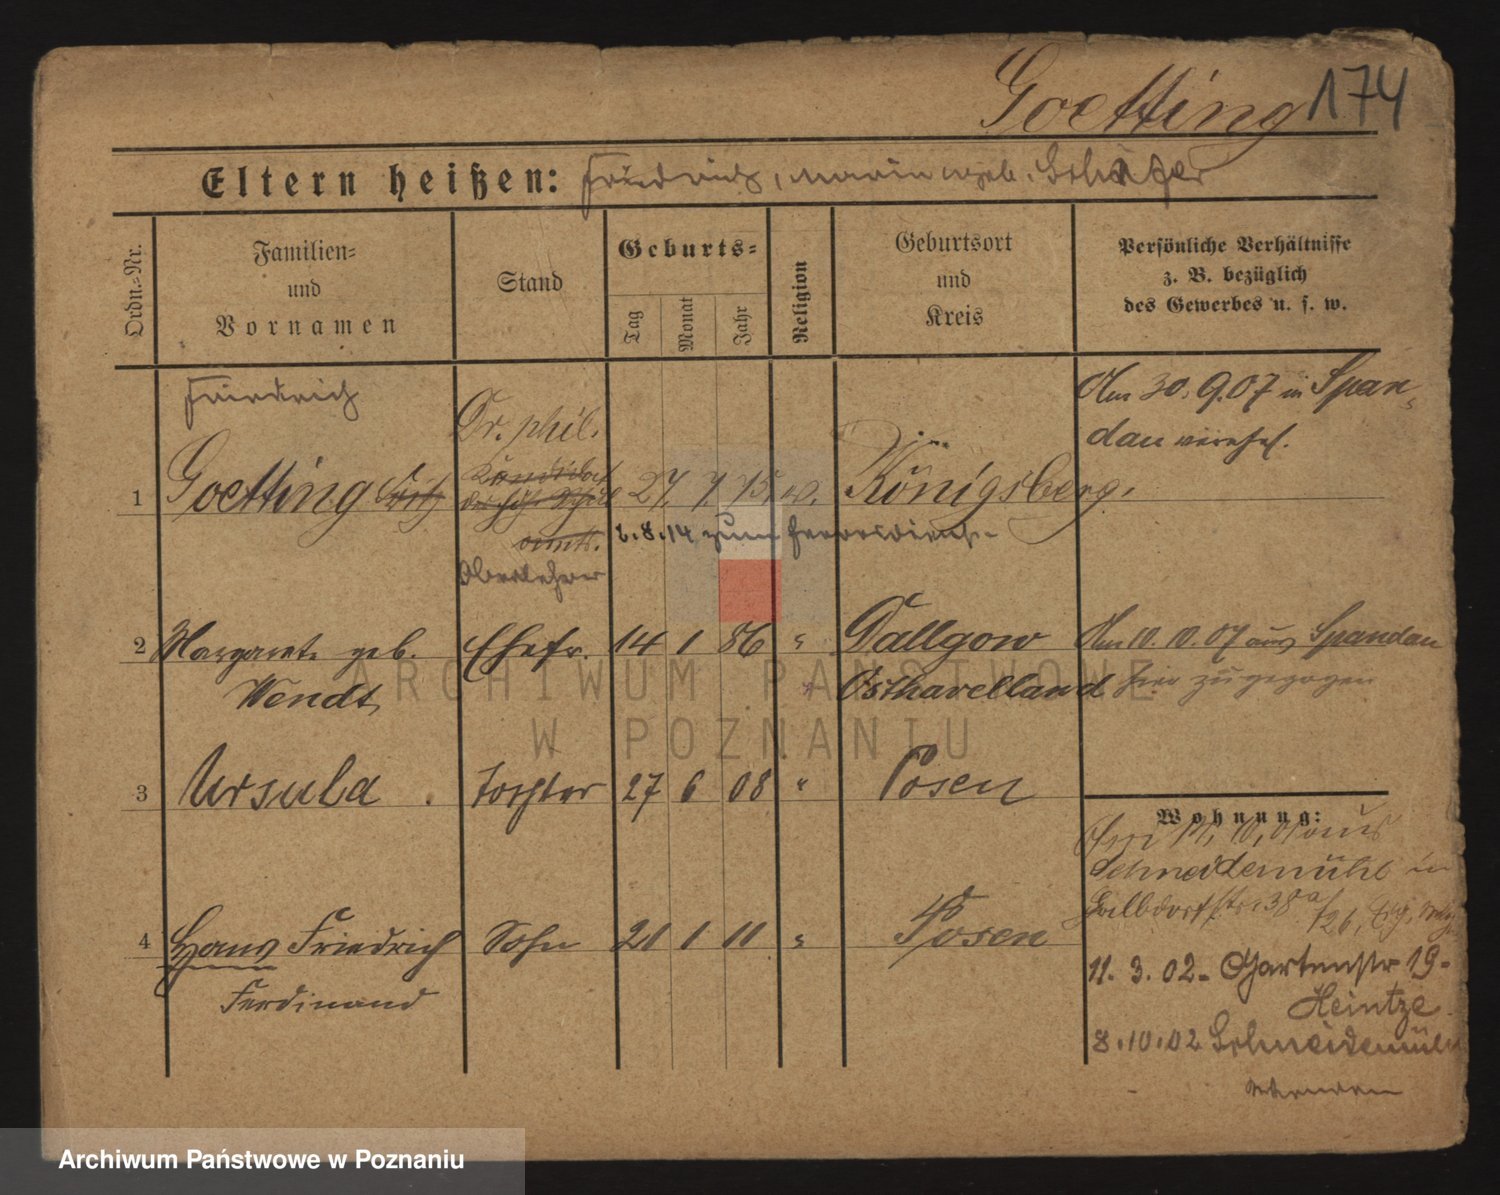 Goetting 174
Eltern heißen: Friedrich, Marie geb. Schäfer
Ordn.-Nr.
Familien-
und
Vornamen
Stand
Geburts-
Tag
Monat
Jahr
Religion
Geburtsort
und
Kreis
Persönliche Verhältnisse
z. B. bezüglich
des Gewerbes u. s. w.
Friedrich
Dr. phil.
Kandidat
1 Goetting Fritz des höh. Schul 27. 7 75 ev. Königsberg.
amts.
Oberlehrer
2.8.14 zum Heeresdienst
Am 30.9.07 in Span-
dau verehel.
2 Margarete geb. Ehefr. 14 1 86 " Dallgow Am 10.10.07 aus Spandau
Wendt Osthavelland hier zugezogen
3 Ursula Tochter 27 6 08 " Posen
4 Hans Friedrich Sohn 21 1 11 " Posen
Ferdinand
Wohnung:
aus
Schneidemühl in
38a
11.3.02 - Gartenstr 19-
Heintze
8.10.02 Schneidemühl
wenden
ARCHIWUM PAŃSTWOWE
W POZNANIU
Archiwum Państwowe w Poznaniu